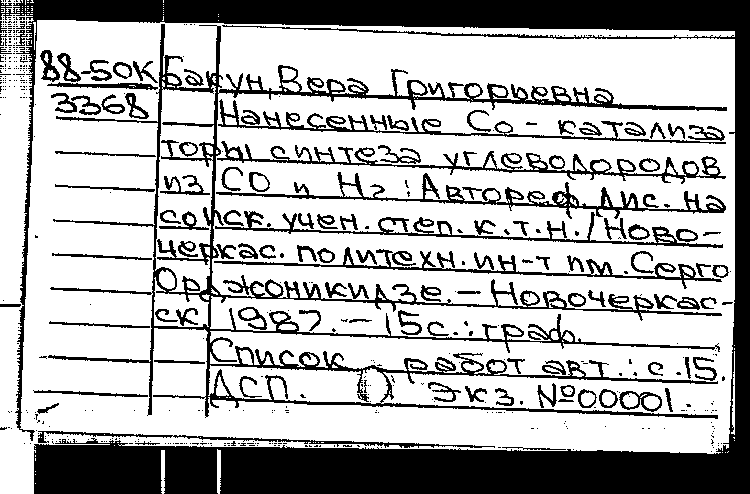 88-50К Бакун, Вера Григорьевна
3368 Нанесенные Со - катализа-
торы синтеза углеводородов
из СО и Н2 : Автореф. дис. на
соиск. учен. степ. к.т.н. / Ново-
черкас. политехн. ин-т им. Серго
Орджоникидзе. - Новочеркас-
ск, 1987. - 15 с. : граф.
Список работ авт. : с. 15.
ДСП. Экз. №00001.